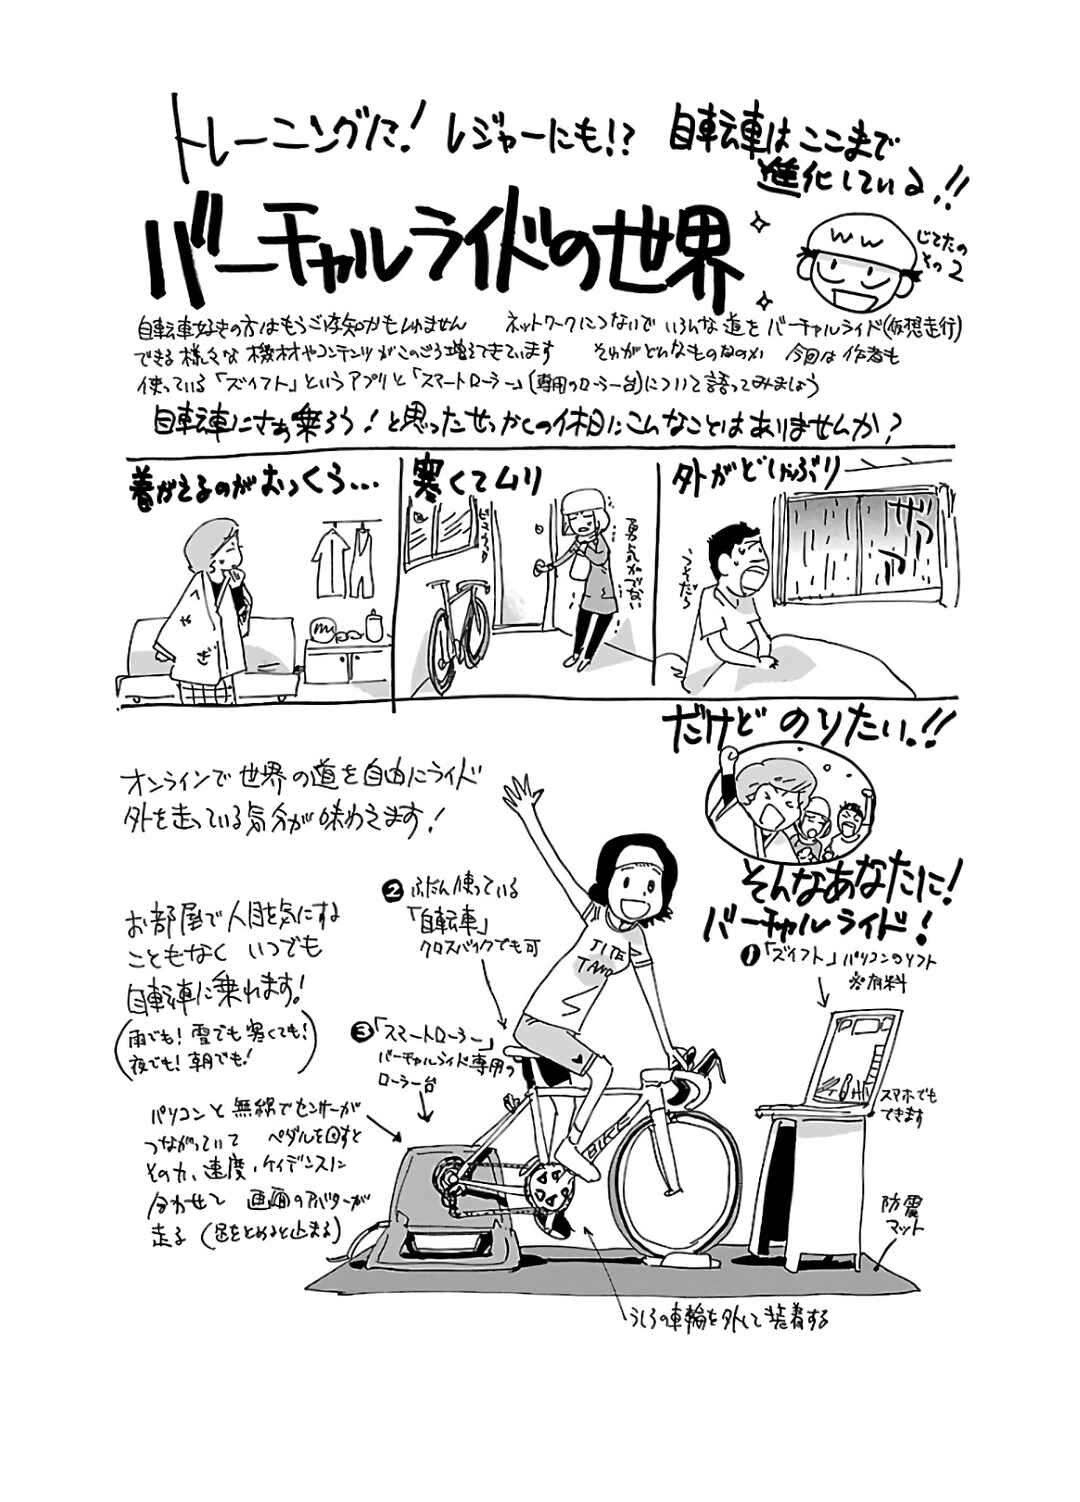 トレーニングに! レジャーにも!? 自転車はここまで
進化している!!
バーチャルライドの世界
じてたの
その2
自転車好きの方はもうご存知かもしれません ネットワークにつないで いろんな道を バーチャルライド(仮想走行)
できる様々な機材やコンテンツがこのごろ増えてきています それがどんなものなのか 今回は作者も
使っている「ズイフト」というアプリと「スマートローラー」(専用のローラー台)について語ってみましょう
自転車にさぁ乗ろう!と思ったせっかくの休日にこんなことはありませんか?
着がえるのがおっくう…
やぎ
寒くてムリ
勇気がでない
外がどしゃぶり
ザァァァ
うそだろ
だけど のりたい!!
そんなあなたに!
バーチャルライド!
オンラインで世界の道を自由にライド
外を走っている気分が味わえます!
お部屋で人目を気にする
こともなく いつでも
自転車に乗れます!
(雨でも! 雪でも 寒くても!
夜でも! 朝でも!)
❶「ズイフト」パソコンのソフト
※有料
スマホでも
できます
❷ふだん使っている
「自転車」
クロスバイクでも可
❸「スマートローラー」
バーチャルライド専用の
ローラー台
パソコンと無線でセンサーが
つながっていて ペダルを回すと
その力、速度、ケイデンスに
合わせて 画面のアバターが
走る (足をとめると止まる)
JITE
TANO
BIKE
防震
マット
うしろの車輪を外して装着する